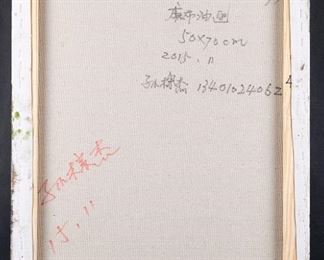 麻布油画
50x70cm
2015.11
孙 13401024062 4
孙
15.11